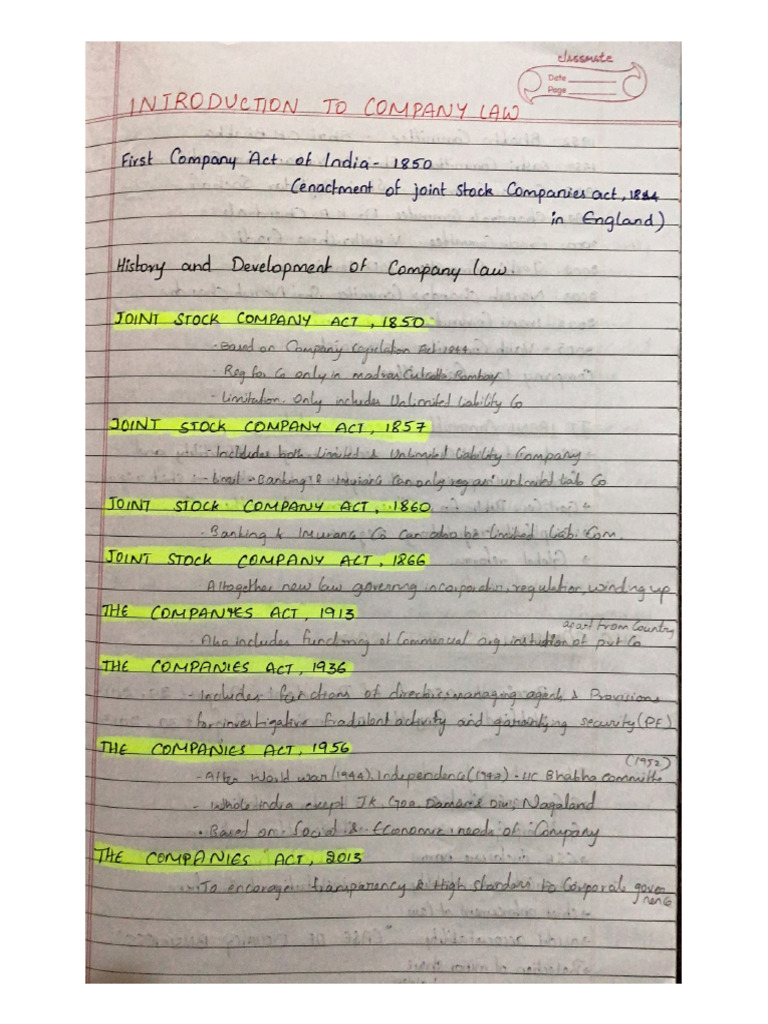 classmate
Date
Page
INTRODUCTION TO COMPANY LAW
First Company Act of India - 1850
(enactment of joint stock Companies act, 1844
in England)
History and Development of Company law.
JOINT STOCK COMPANY ACT, 1850
- Based on Company Act 1844
- Reg for Co only in madras, Calcutta, Bombay
- Limitation. Only includes Unlimited Liability Co
JOINT STOCK COMPANY ACT, 1857
- Includes both Limited & Unlimited Liability Company
- Banking & Can only reg as unlimited Liab Co
JOINT STOCK COMPANY ACT, 1860
- Banking & Insurance Co Can also be Limited Liabi Com.
JOINT STOCK COMPANY ACT, 1866
- Altogether new law governing incorporation, regulation, winding up
THE COMPANIES ACT, 1913
apart from Country
- Also includes functioning of Commercial org institution of pvt Co
THE COMPANIES ACT, 1936
- Includes functions of managing agents & Provisions
for activity and security (PF)
THE COMPANIES ACT, 1956
(1952)
- After World war (1944). Independence Bhabha committe
- Whole India except JK, Goa, Daman & Diu, Nagaland
• Based on Social & Economic needs of Company
THE COMPANIES ACT, 2013
- To transparency & High to Corporate gover
nence